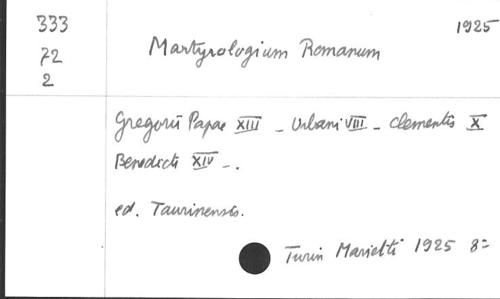 333 1925
72 Martyrologium Romanum
2
Gregorii Papae XIII - Urbani VIII - Clementis X
Benedicti XIV -.
ed. Taurinensis.
Turin Marietti 1925 8=